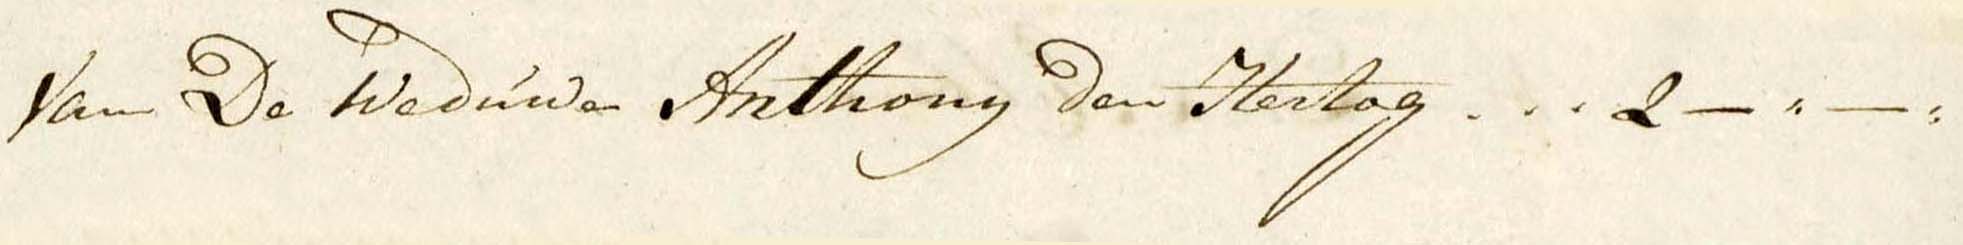 Van De Weduwe Anthony den Hertog . . . 2 — " — "